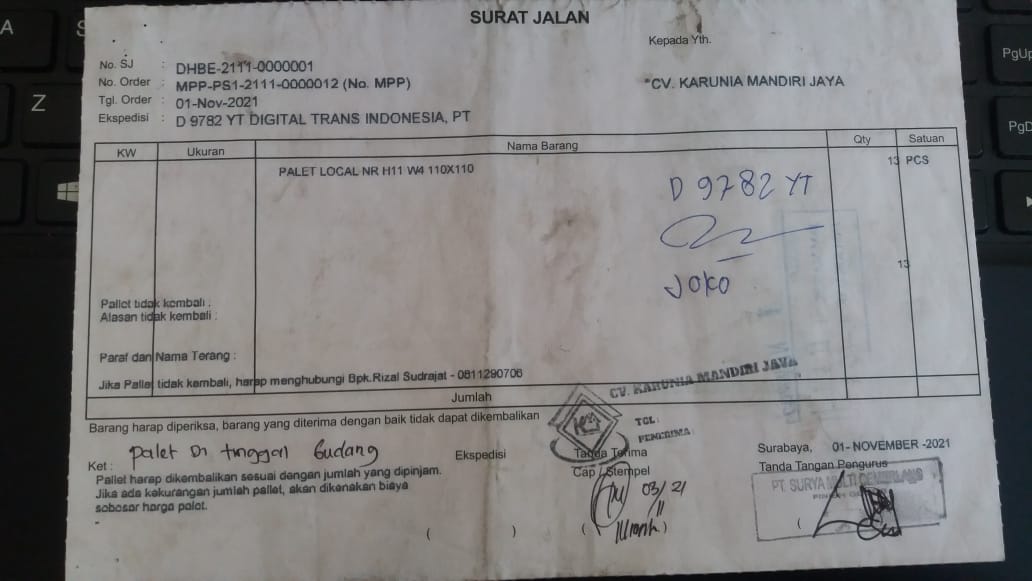 SURAT JALAN
Kepada Yth.
No. SJ : DHBE-2111-0000001
No. Order : MPP-PS1-2111-0000012 (No. MPP)
Tgl. Order : 01-Nov-2021
Ekspedisi : D 9782 YT DIGITAL TRANS INDONESIA, PT
CV. KARUNIA MANDIRI JAYA
KW Ukuran Nama Barang Qty Satuan
PALET LOCAL NR H11 W4 110X110 13 PCS
D 9782 YT
JOKO
13
Pallet tidak kembali :
Alasan tidak kembali :
Paraf dan Nama Terang :
Jika Pallet tidak kembali, harap menghubungi Bpk.Rizal Sudrajat - 0811290706
Jumlah
CV. KARUNIA MANDIRI JAYA
TGL:
PENERIMA:
Barang harap diperiksa, barang yang diterima dengan baik tidak dapat dikembalikan
Ket : Palet Di tinggal Gudang
Pallet harap dikembalikan sesuai dengan jumlah yang dipinjam.
Jika ada kekurangan jumlah pallet, akan dikenakan biaya
sebesar harga palet.
Ekspedisi
( )
Tanda Terima
Cap / Stempel
03/21
11
(
)
Surabaya, 01- NOVEMBER -2021
Tanda Tangan Pengurus
PT. SURYA MULTI
(
A
Z
PgUp